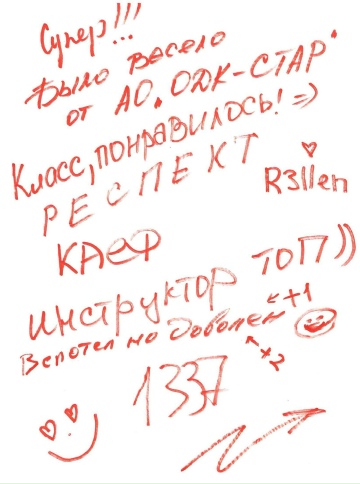 Супер!!!
Было весело
от АО "ОДК-СТАР"
Класс, понравилось! =)
РЕСПЕКТ
R3llen
КАЕФ
ИНСТРУКТОР ТОП))
Вспотел но доволен
+1
+2
1337